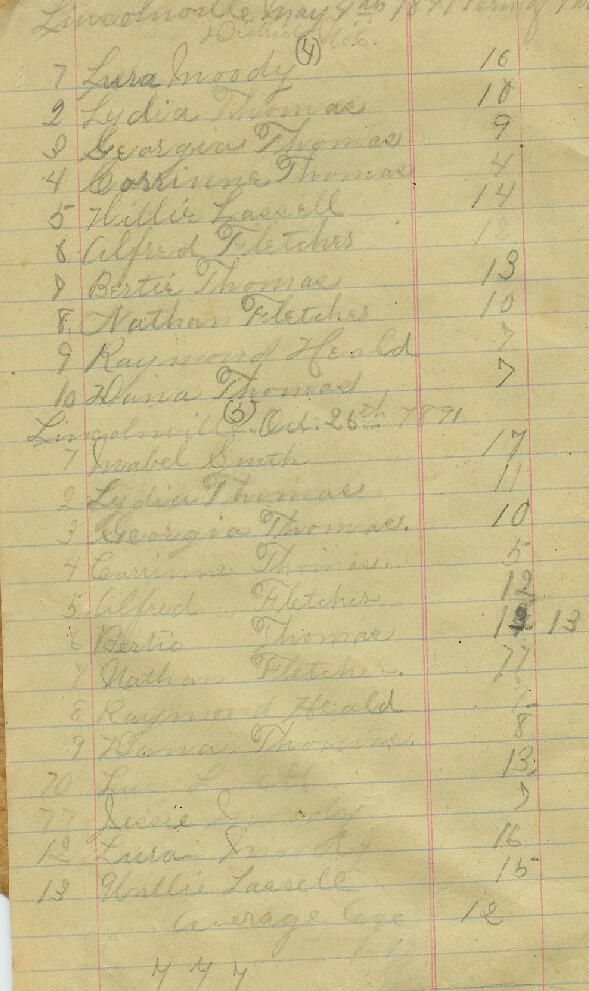 Lincolnville, May 4th 1891 Term of
District No. 6.
(4)
1 Lura Moody 16
2 Lydia Thomas 10
3 Georgia Thomas 9
4 Corrinne Thomas 4
5 Willie Lassell 14
6 Alfred Fletcher 12
7 Bertie Thomas 13
8. Nathan Fletcher 10
9 Raymond Heald 7
10 Dana Thomas 7
(5)
Lincolnville Oct. 26th 1891
1 Mabel Smith 17
2 Lydia Thomas 11
3 Georgia Thomas. 10
4 Corrinne Thomas. 5
5 Alfred Fletcher 12
6 Bertie Thomas 13 13
7 Nathan Fletcher. 11
8 Raymond Heald 7
9 Dana Thomas. 8
10 13
11 Susie Moody 7
12 Lura Moody 16
13 Willie Lassell 15
Average Age 12